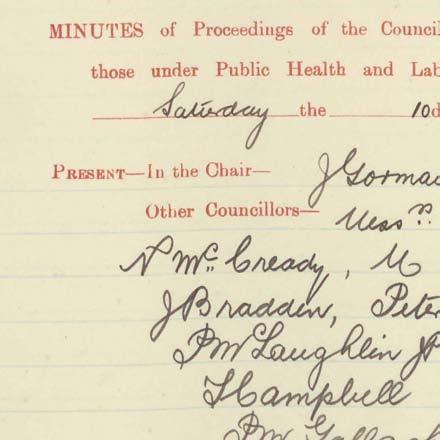 MINUTES of Proceedings of the Council
those under Public Health and Lab
Saturday the 10
PRESENT—In the Chair— J Gorma
Other Councillors— Messrs.
N McCready, M
J Bradden, Peter
P McLaughlin J
J Campbell
P M Gallagh